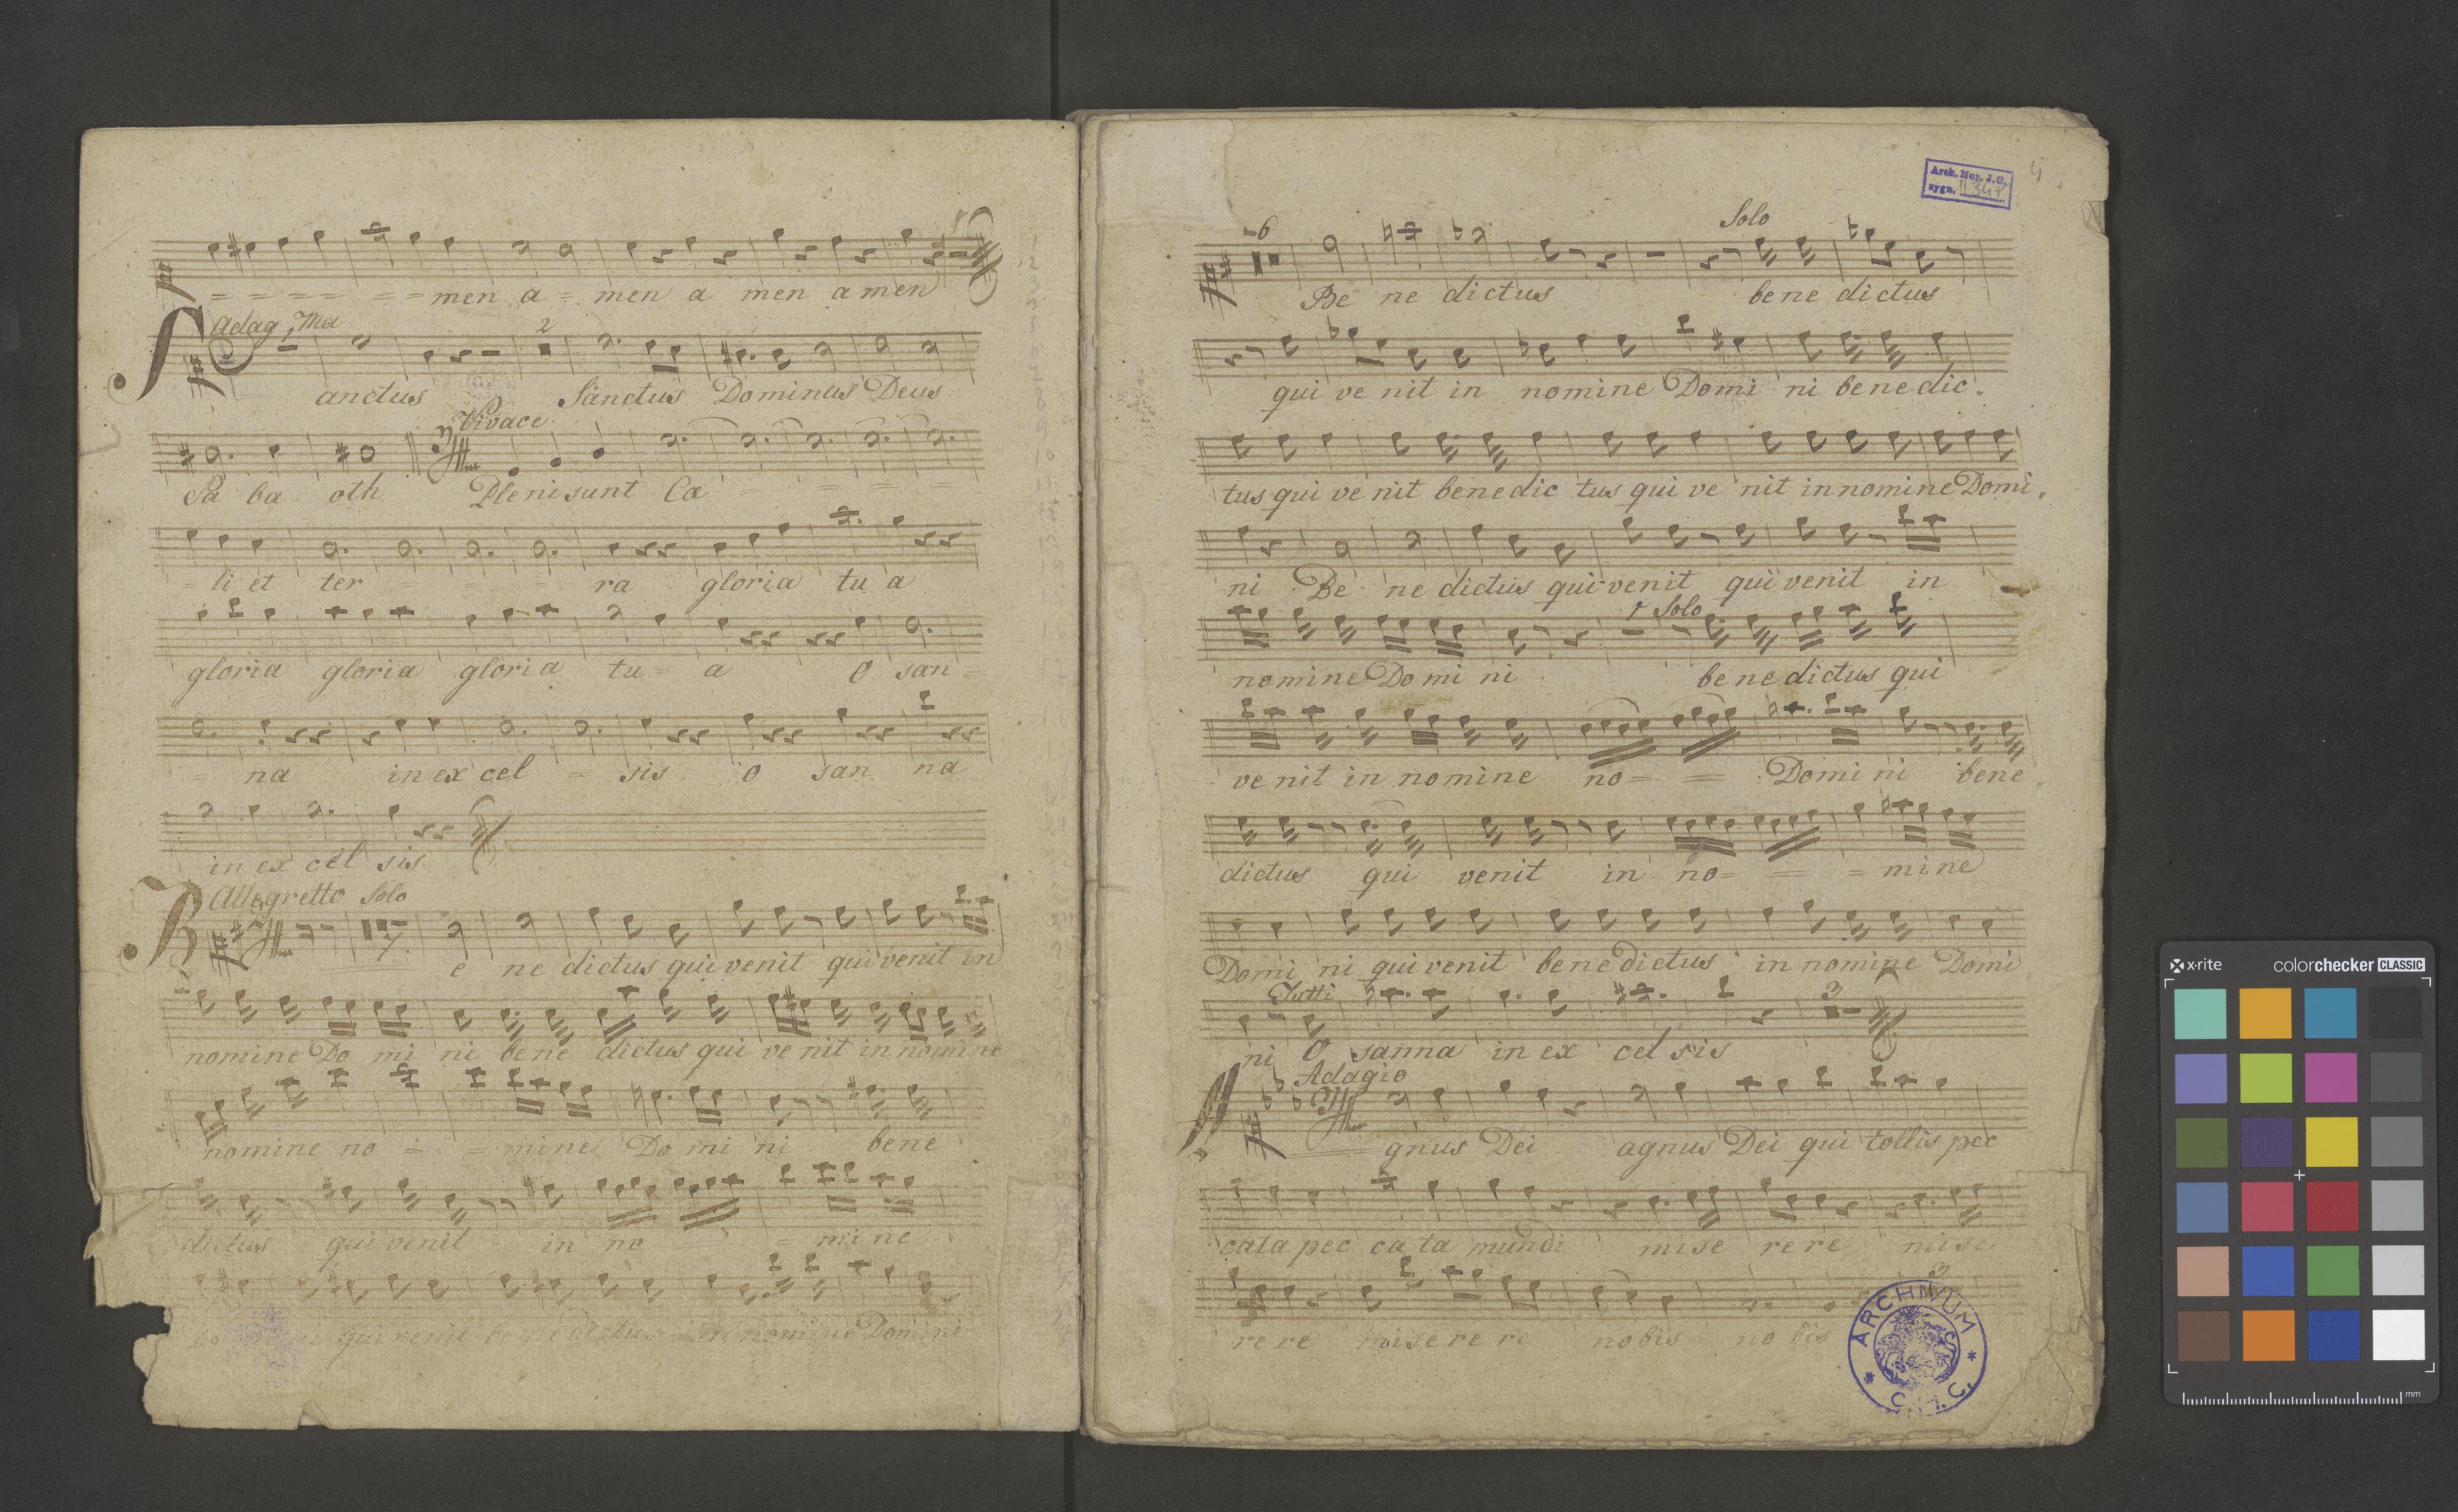 = = = = = = men a = men a men a men
Adag Ma
1
2
Sanctus Sanctus Dominus Deus
Vivace
Sa ba oth Pleni sunt Cœ = = = =
= li et ter = = = ra gloria tu a
gloria gloria gloria tu = a O san =
= na in ex cel = sis o san na
in ex cel sis
Allegretto Solo
Be ne dictus qui venit qui venit in
nomine Do mi ni bene dictus qui ve nit in nomine
nomine no = = mine Do mi ni bene
dictus qui venit in no = mi ne
qui venit in nomine Domini
Arch. Muz. J.G.
sygn. II 347
4
6
Solo
Be ne dictus bene dictus
qui ve nit in nomine Domi ni benedic.
tus qui ve nit benedic tus qui ve nit in nomine Domi.
ni Be ne dictus qui venit qui venit in
1 Solo
nomine Do mi ni be ne dictus qui
ve nit in nomine no = = Domi ni bene
dictus qui venit in no = = = mi ne
Domi ni qui venit bene dictus in nomine Domi
Tutti
3
ni O sanna in ex cel sis
Adagio
Agnus Dei agnus Dei qui tollis pec
cata pec ca ta mundi mise rere mise
3
re re mise re re nobis no bis
ARCHIVUM * C.M.C. *
x-rite colorchecker CLASSIC
mm